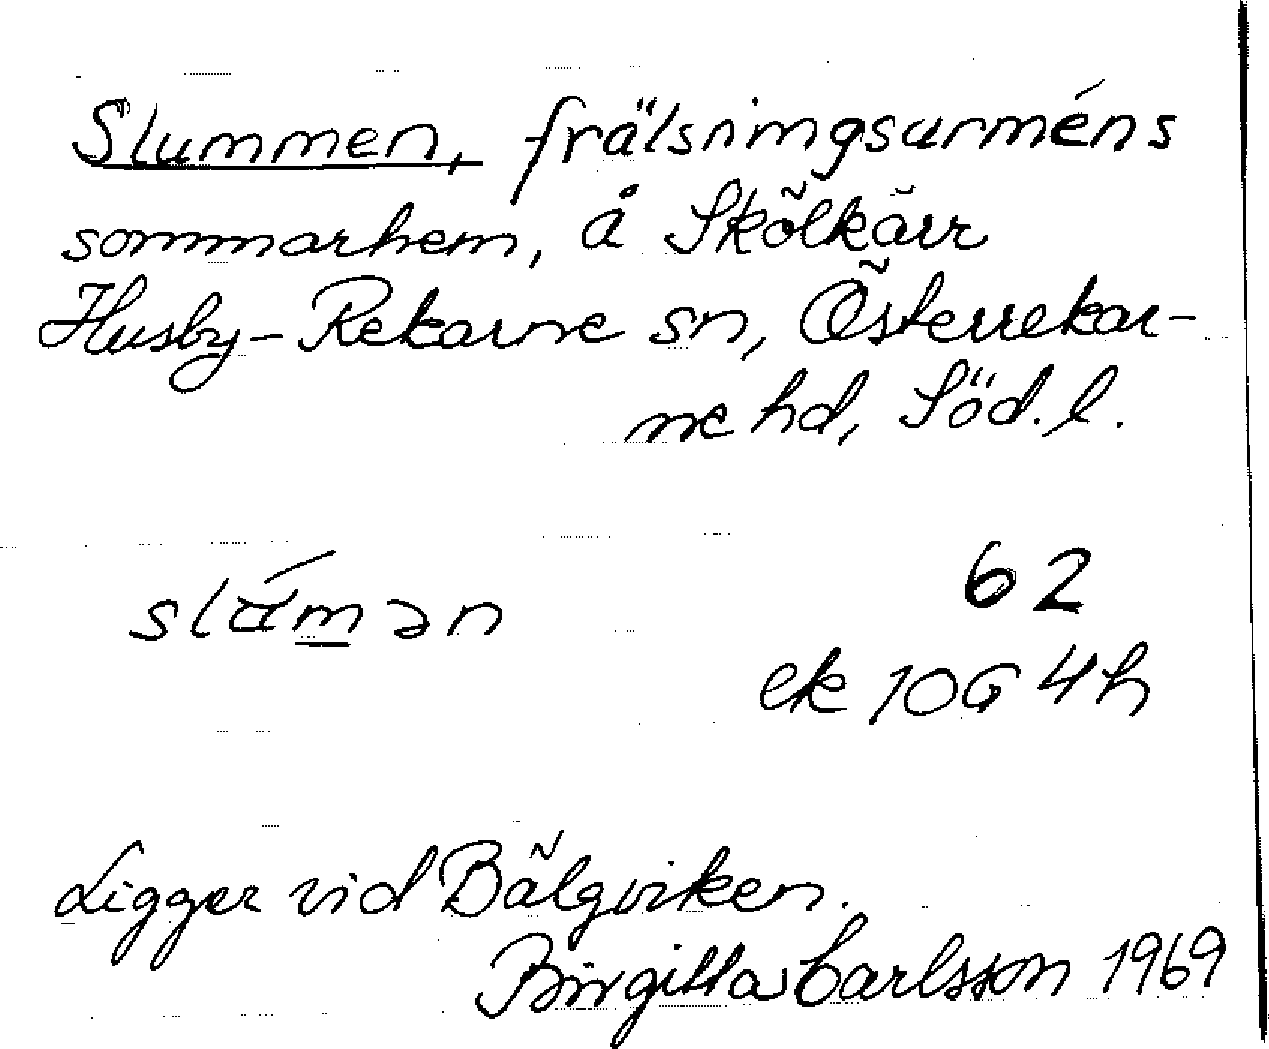 Slummen, frälsningsarméns
sommarhem, å Skölkärr
Husby-Rekarne sn, Österrekar-
ne hd, Söd. l.
62
ek 10G 4h
Ligger vid Bälgviken.
Birgitta Carlsson 1969